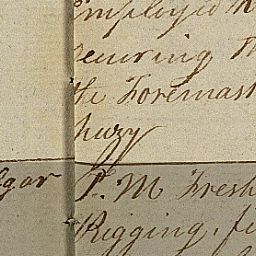 Employed
securing
the Foremast
hazy
P.M Fresh
Rigging, fi